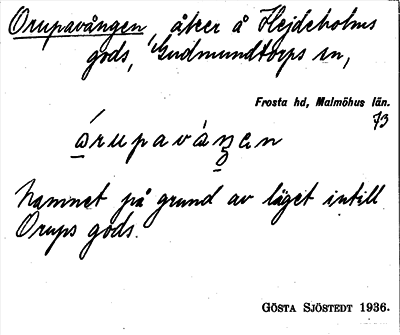 Orupavången, åker å Hejdeholms
gods, Gudmundtorps sn,
Frosta hd, Malmöhus län.
73
órupaváŋen
Namnet på grund av läget intill
Orups gods.
GÖSTA SJÖSTEDT 1936.